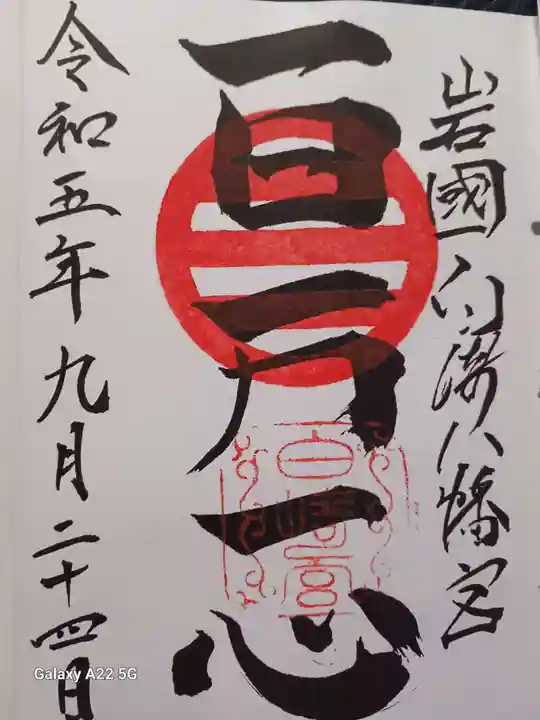 岩國白崎八幡宮
一日一月一心
令和五年九月二十四日
Galaxy A22 5G